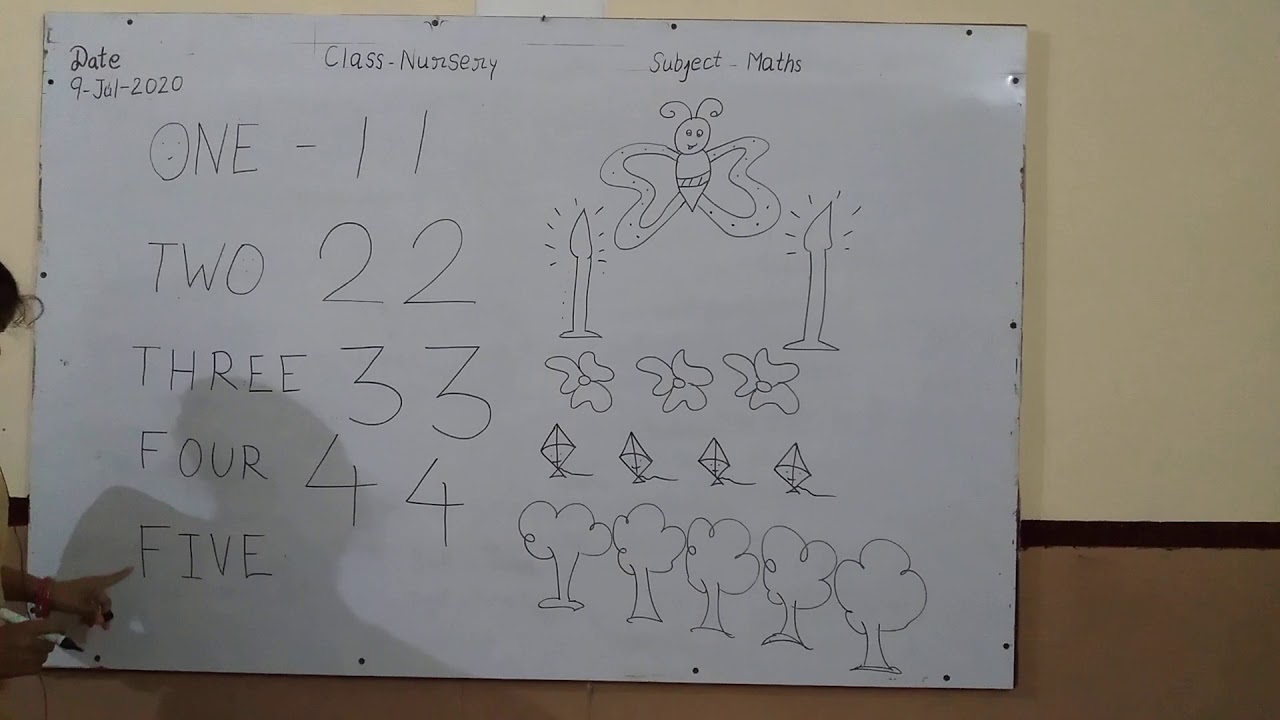 Date Class-Nursery Subject - Maths
9-Jul-2020
ONE - 1 1
TWO 2 2
THREE 3 3
FOUR 4 4
FIVE